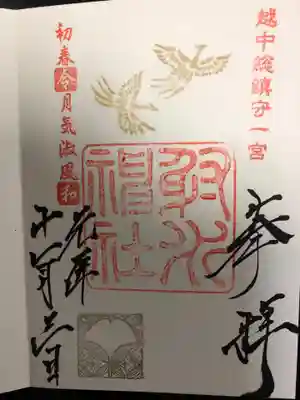 越中総鎮守一宮
奉拝
射水
神社
初春令月気淑風和
元年